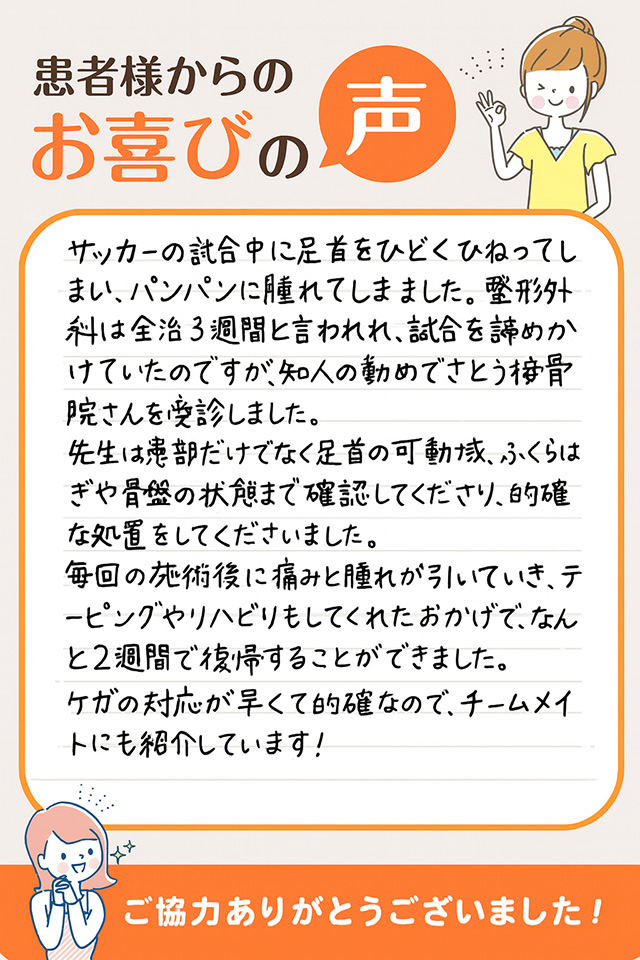 患者様からの
お喜びの
声
サッカーの試合中に足首をひどくひねってし
まい、パンパンに腫れてしまました。整形外
科は全治3週間と言われれ、試合を諦めか
けていたのですが、知人の勧めでさとう接骨
院さんを受診しました。
先生は患部だけでなく足首の可動域、ふくらは
ぎや骨盤の状態まで確認してくださり、的確
な処置をしてくださいました。
毎回の施術後に痛みと腫れが引いていき、テ
ーピングやリハビリもしてくれたおかげで、なん
と2週間で復帰することができました。
ケガの対応が早くて的確なので、チームメイ
トにも紹介しています!
ご協力ありがとうございました!